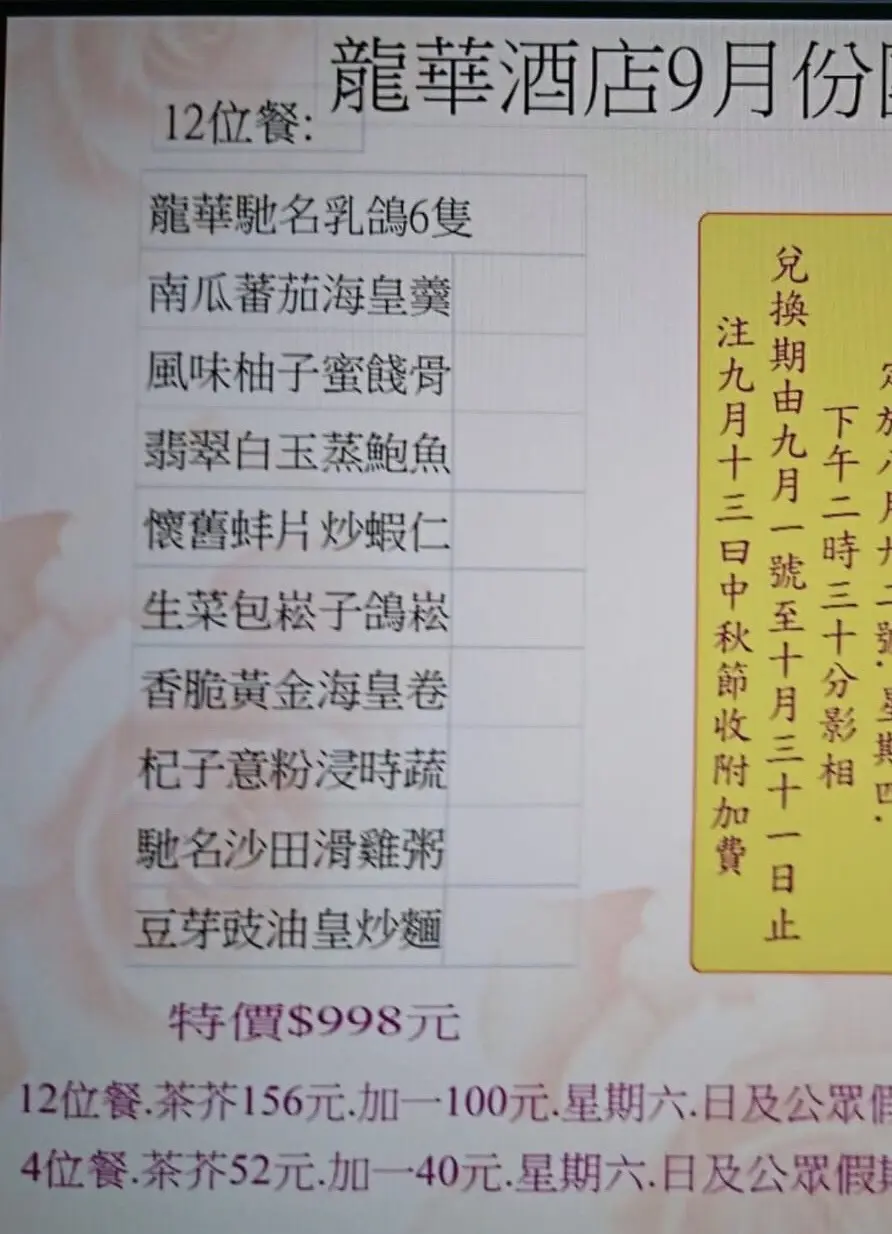 龍華酒店9月份
12位餐:
龍華馳名乳鴿6隻
南瓜蕃茄海皇羹
風味柚子蜜餞骨
翡翠白玉蒸鮑魚
懷舊蚌片炒蝦仁
生菜包崧子鴿崧
香脆黃金海皇卷
杞子意粉浸時蔬
馳名沙田滑雞粥
豆芽豉油皇炒麵
特價$998元
下午二時三十分影相
兌換期由九月一號至十月三十一日止
注九月十三日中秋節收附加費
12位餐.茶芥156元.加一100元.星期六.日及公眾假
4位餐.茶芥52元.加一40元.星期六.日及公眾假期